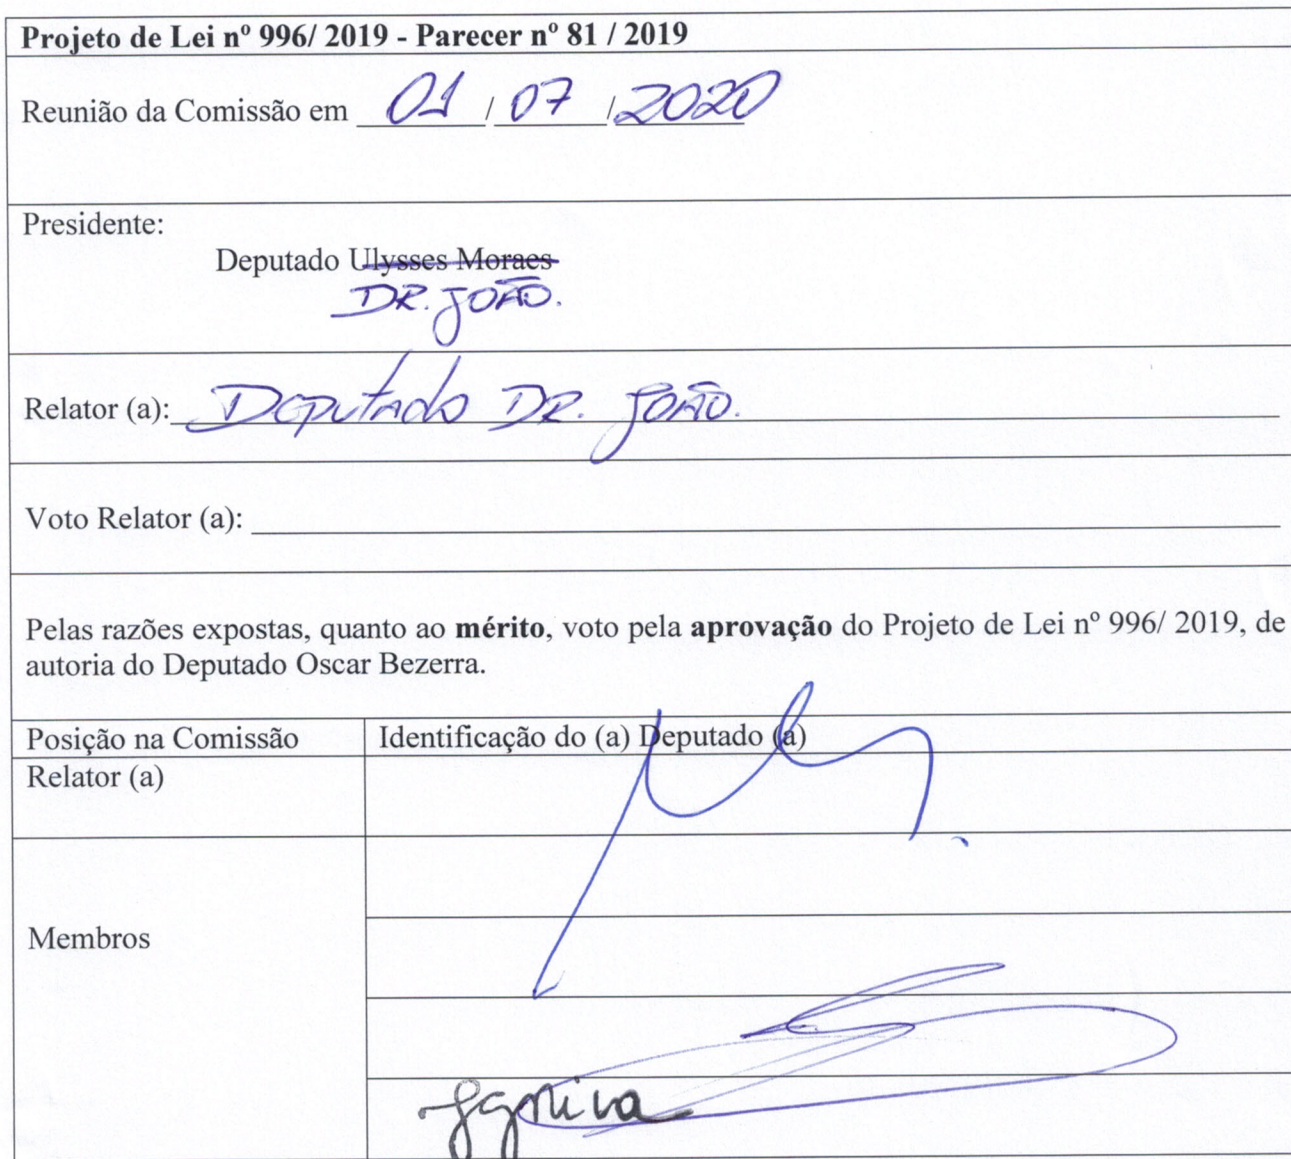 Projeto de Lei nº 996/ 2019 - Parecer nº 81 / 2019
Reunião da Comissão em 01 / 07 / 2020
Presidente:
Deputado Ulysses Moraes
DR. JOÃO.
Relator (a): Deputado DR. JOÃO.
Voto Relator (a):
Pelas razões expostas, quanto ao mérito, voto pela aprovação do Projeto de Lei nº 996/ 2019, de
autoria do Deputado Oscar Bezerra.
Posição na Comissão Identificação do (a) Deputado (a)
Relator (a)
Membros